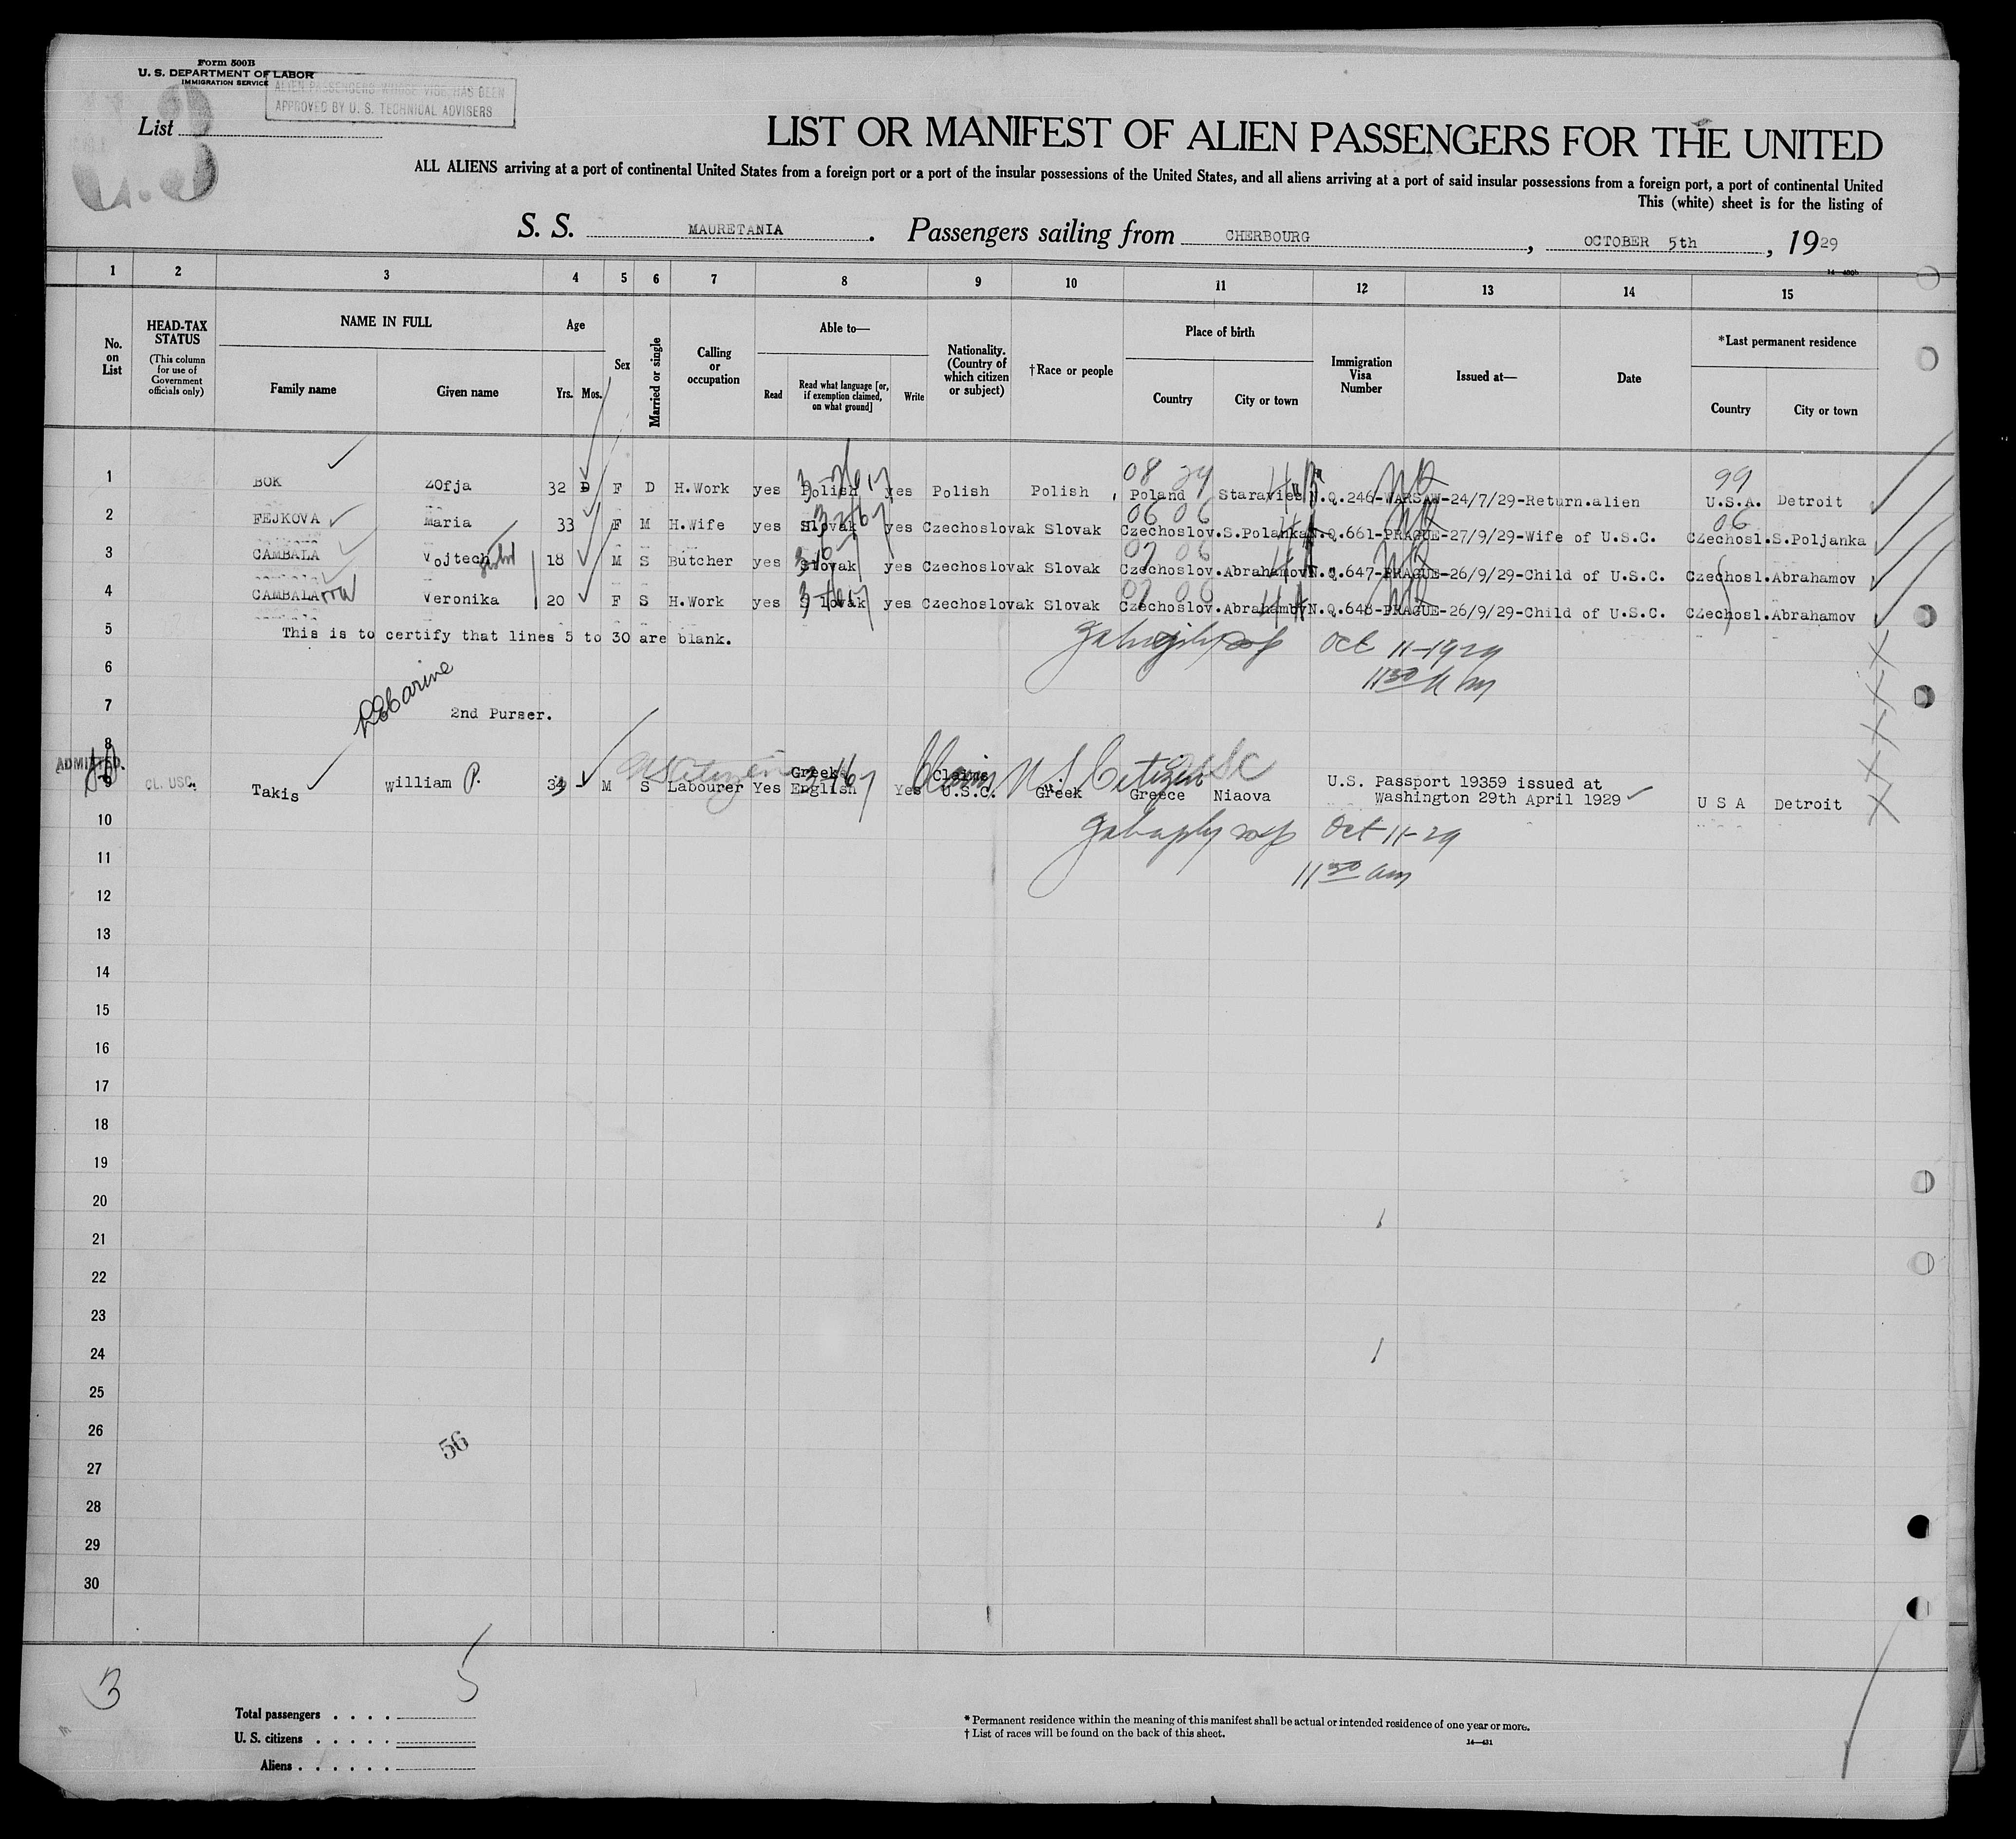 Form 500B
U. S. DEPARTMENT OF LABOR
IMMIGRATION SERVICE
ALIEN PASSENGERS WHOSE VISE HAS BEEN
APPROVED BY U. S. TECHNICAL ADVISERS
List
LIST OR MANIFEST OF ALIEN PASSENGERS FOR THE UNITED
ALL ALIENS arriving at a port of continental United States from a foreign port or a port of the insular possessions of the United States, and all aliens arriving at a port of said insular possessions from a foreign port, a port of continental United
This (white) sheet is for the listing of
S. S. MAURETANIA. Passengers sailing from CHERBOURG, OCTOBER 5th, 1929
14-430b
1 2 3 4 5 6 7 8 9 10 11 12 13 14 15
No. on List
HEAD-TAX STATUS
(This column for use of Government officials only)
NAME IN FULL
Family name
Given name
Age
Yrs. Mos.
Sex
Married or single
Calling or occupation
Able to—
Read
Read what language [or, if exemption claimed, on what ground]
Write
Nationality. (Country of which citizen or subject)
†Race or people
Place of birth
Country
City or town
Immigration Visa Number
Issued at—
Date
*Last permanent residence
Country
City or town
08 29 99
1 BOK Zofja 32 F D H.Work yes Polish yes Polish Polish Poland Staravies N.Q.246-WARSAW-24/7/29-Return.alien U.S.A. Detroit
06 06 06
2 FEJKOVA Maria 33 F M H.Wife yes Slovak yes Czechoslovak Slovak Czechoslov.S.Polanka N.Q.661-PRAGUE-27/9/29-Wife of U.S.C. Czechosl.S.Poljanka
3 CAMBALA Vojtech 18 M S Butcher yes Slovak yes Czechoslovak Slovak Czechoslov.Abrahamov N.Q.647-PRAGUE-26/9/29-Child of U.S.C. Czechosl.Abrahamov
4 CAMBALA Veronika 20 F S H.Work yes Slovak yes Czechoslovak Slovak Czechoslov.Abrahamov N.Q.648-PRAGUE-26/9/29-Child of U.S.C. Czechosl.Abrahamov
5 This is to certify that lines 5 to 30 are blank.
Oct 11-1929
6
11 30 A m
7 2nd Purser.
8
ADMITTED.
US Citizen Claims U S Citizen USC
9 CL. USC. Takis William P. 39 M S Labourer Yes Greek English Yes Claims U.S.C. Greek Greece Niaova U.S. Passport 19359 issued at Washington 29th April 1929 U S A Detroit
10
Oct-11-29
11
11 30 am
12
13
14
15
16
17
18
19
20
21
22
23
24
25
26
56
27
28
29
30
3
5
Total passengers
U. S. citizens
Aliens
* Permanent residence within the meaning of this manifest shall be actual or intended residence of one year or more.
† List of races will be found on the back of this sheet.
14-431